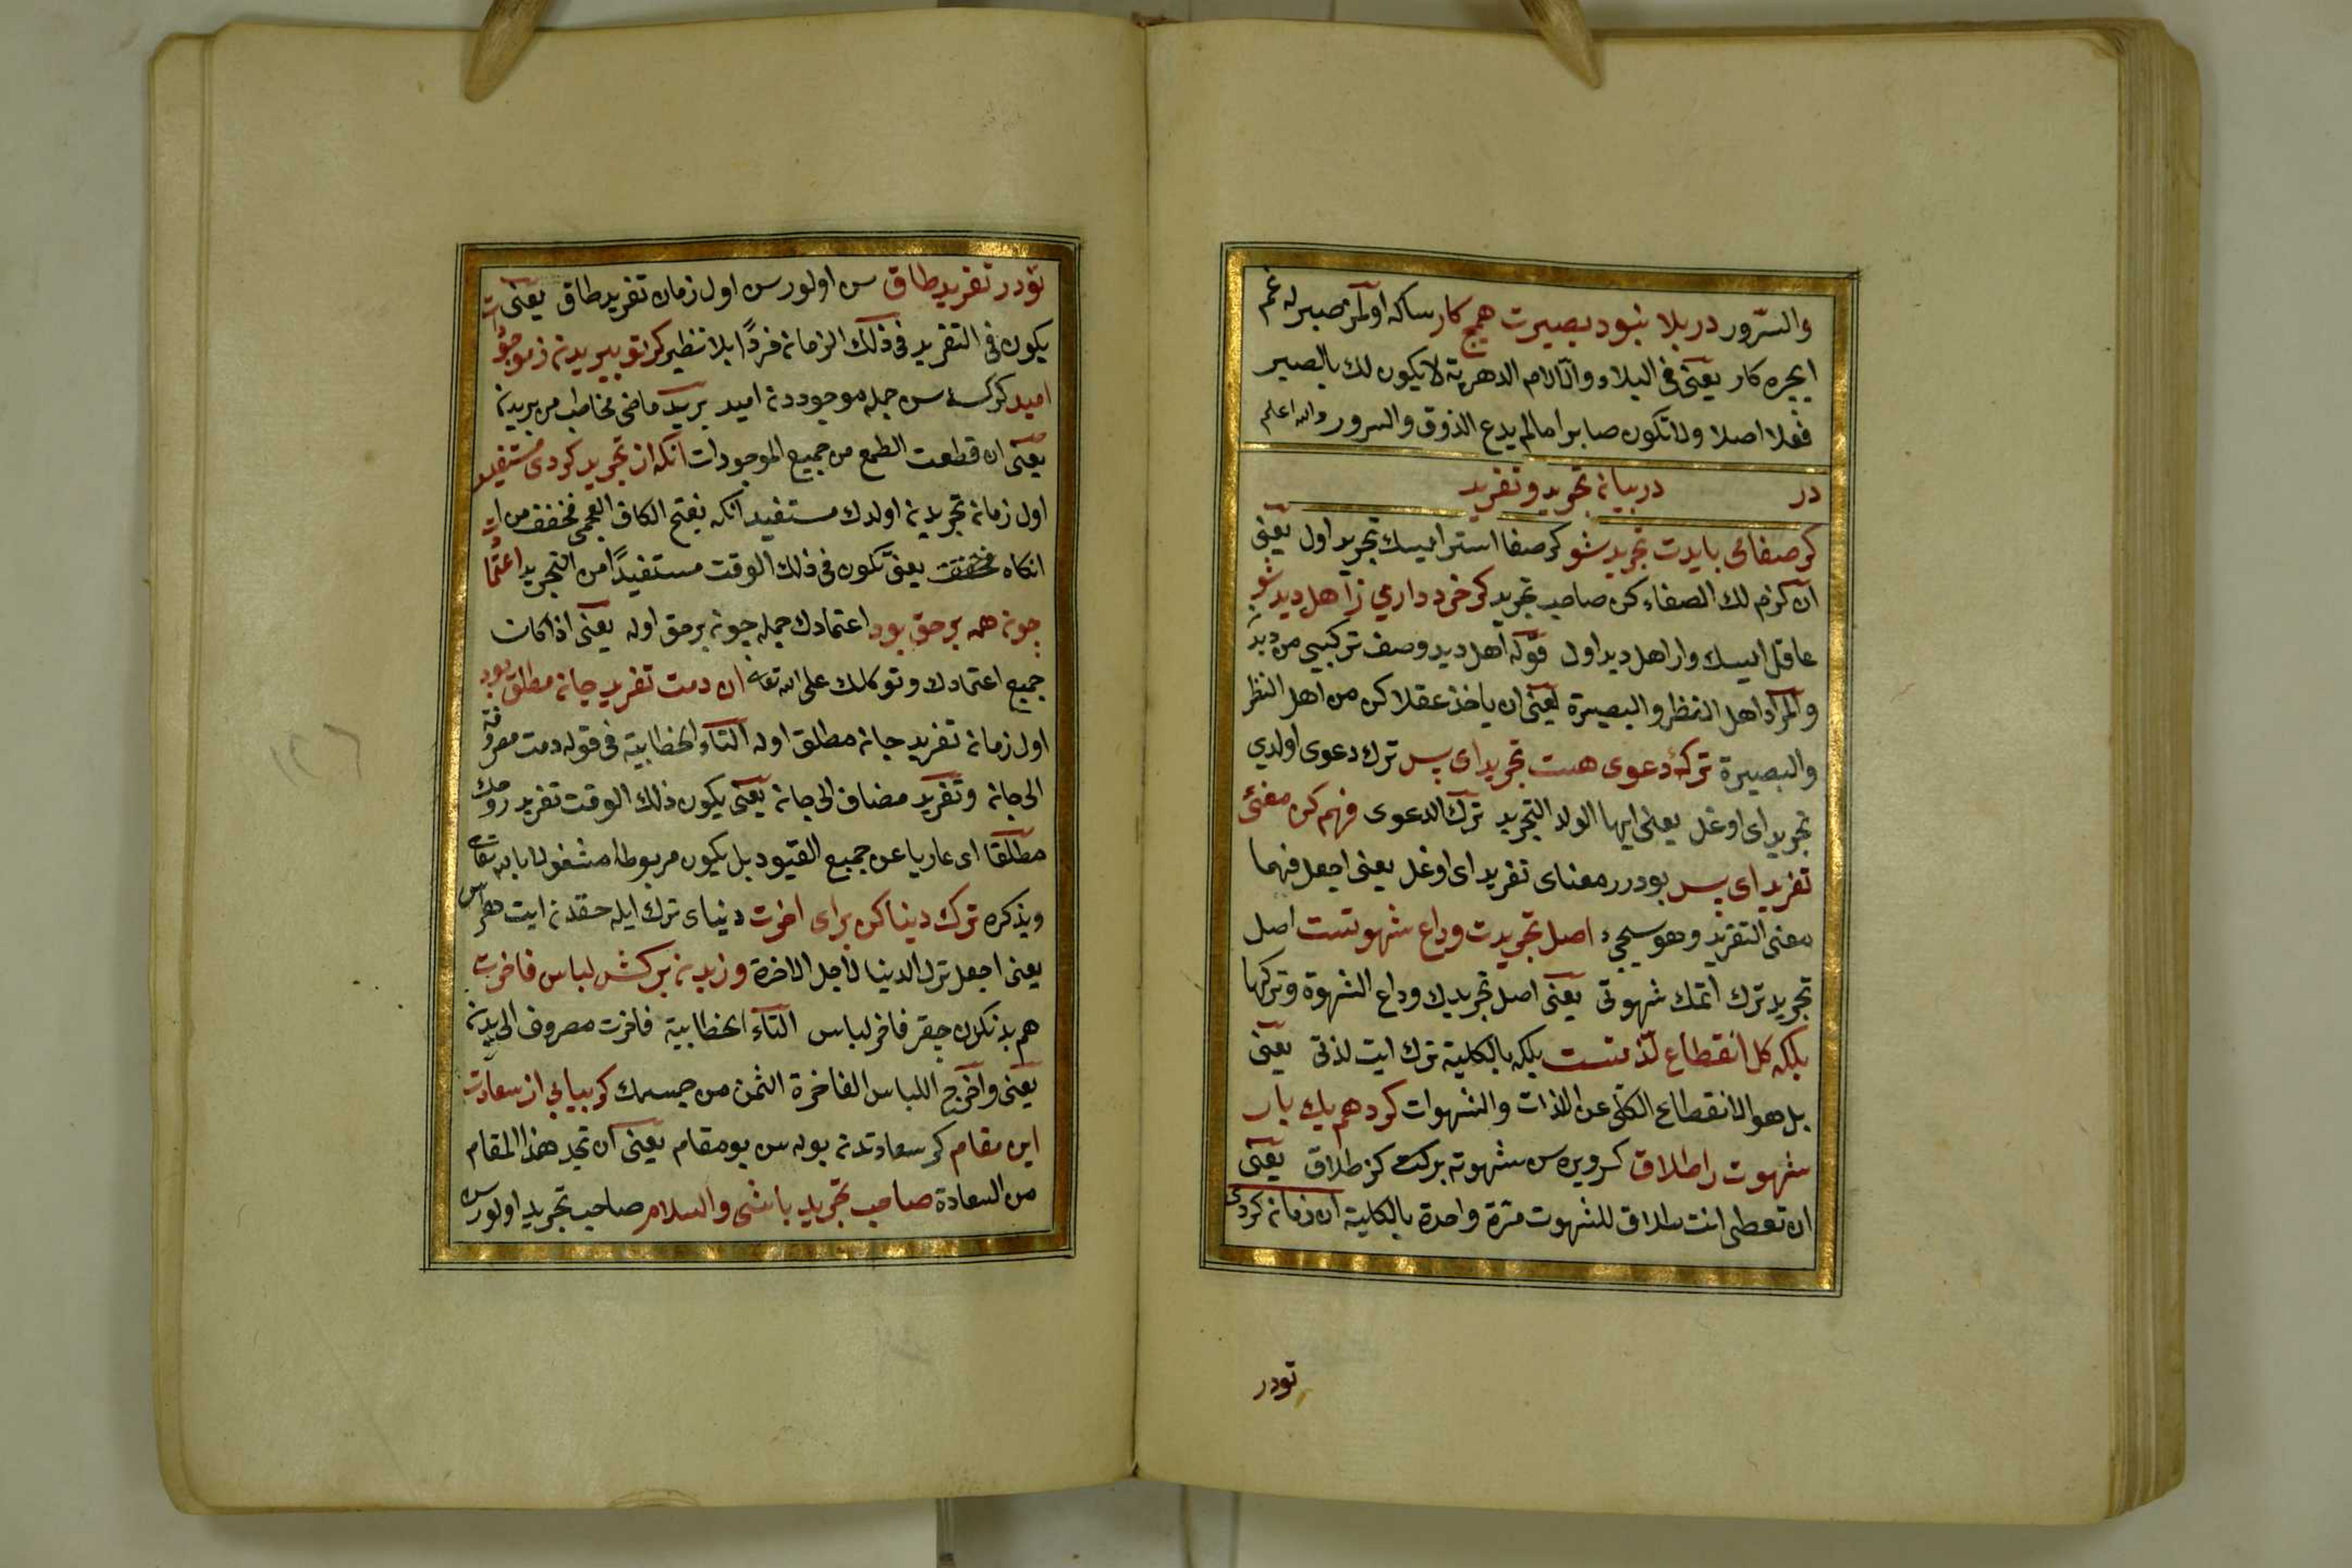 والسرور در بلا نبود بصیرت هیچ کار ساكه اولمز صبرله غم
ایچره كار یعنی فی البلاء والآلام الدهریة لا یكون لك بالصبر
فعلا اصلا ولا تكون صابرا مالم یدع الذوق والسرور والله اعلم
در در بیان تجرید و تفرید
گر صفائی بایدت تجرید شو گر صفا استر ایسك تجرید اول یعنی
ان كرم لك الصفاء كن صاحب تجرید گر خرد داری ز اهل دید شو
عاقل ایسك وار اهل دید اول قوله اهل دید وصف تركیبی من دیدن
والمراد اهل النظر والبصیرة یعنی ان یاخذ عقلا كن من اهل النظر
والبصیرة ترك دعوی هست تجرید ای پسر ترك دعوی اولدی
تجرید ای اوغل یعنی ایها الولد التجرید ترك الدعوی فهم كن معنئ
تفرید ای پسر بودرر معنای تفرید ای اوغل یعنی اجعل فهما
معنی التفرید وهو سیجیء اصل تجریدت وداع شهوتست اصل
تجرید ترك اتمك شهوتی یعنی اصل تجریدك وداع الشهوة وتركها
بلكه كل انقطاع لذتست بلكه بالكلیة ترك ایت لذتی یعنی
بل هو الانقطاع الكلی عن اللذات والشهوات گر دهی یك بار
شهوت را طلاق گر ویره سن شهوته بر كت كز طلاق یعنی
ان تعطی انت طلاق للشهوت مرة واحدة بالكلیة ان زمان كردی
تودر
تو در تفرید طاق سن اولورسن اول زمان تفرید طاق یعنی انت
یكون فی التفرید فی ذلك الزمان فردًا بلا نظیر گر تو ببریدن ز موجودات
امید گر كسه سن جمله موجوددن امید برید ماضی مخاطب من بریدن
یعنی ان قطعت الطمع من جمیع الموجودات آنكه از تجرید كردی مستفید
اول زمان تجریدن اولدك مستفید انكه بفتح الكاف العجمی مخفف من
انكاه یعنی تكون فی ذلك الوقت مستفیدًا من التجرید اعتمادت
چون همه بر حق بود اعتمادك جمله چون بر حق اوله یعنی اذا كانت
جمیع اعتمادك وتوكلك علی الله تعالی ان دمت تفرید جان مطلق بود
اول زمان تفرید جان مطلق اوله التاء الخطابیة فی قوله دمت مصروفة
الی جان وتفرید مضاف الی جان یعنی یكون ذلك الوقت تفرید روحك
مطلقا ای عاریا عن جمیع القیود بل یكون مربوطا مشغولا بالله تعالی
وبذكره ترك دنیا كن برای اخرت دنیای ترك ایله حقدن ایت
یعنی اجعل ترك الدنیا لاجل الاخرة وز بدن بركش لباس فاخرت
هم بدنكدن چقر فاخر لباس التاء الخطابیة فاخرت مصروف الی بدن
یعنی واخرج اللباس الفاخرة الثمن من جسمك گر بیابی از سعادت
این مقام گر سعادتدن بوله سن بو مقام یعنی ان تجد هذا المقام
من السعادة صاحب تجرید باشی والسلام صاحب تجرید اولورسن